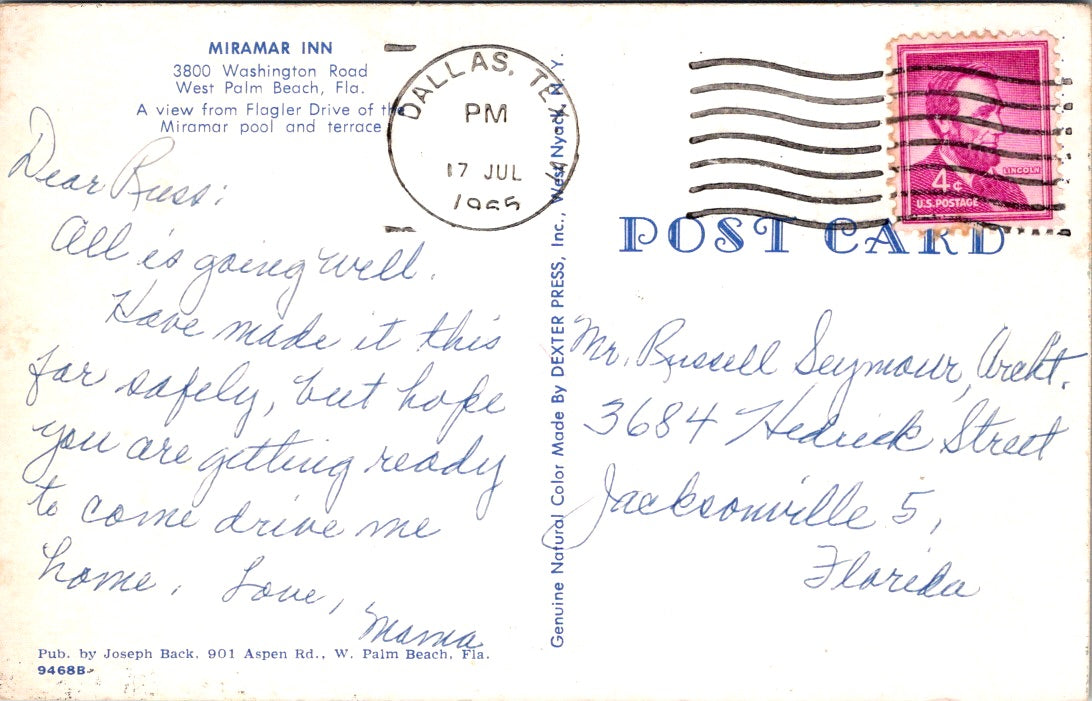 MIRAMAR INN
3800 Washington Road
West Palm Beach, Fla.
A view from Flagler Drive of the
Miramar pool and terrace
DALLAS, TEX
PM
17 JUL
1965
LINCOLN
4¢
U.S. POSTAGE
POST CARD
Dear Russ:
All is going well.
Have made it this
far safely, but hope
you are getting ready
to come drive me
home. Love,
Mama
Genuine Natural Color Made By DEXTER PRESS, Inc., West Nyack, N. Y.
Mr. Russell Seymour, Archt.
3684 Hedrick Street
Jacksonville 5,
Florida
Pub. by Joseph Back, 901 Aspen Rd., W. Palm Beach, Fla.
9468B